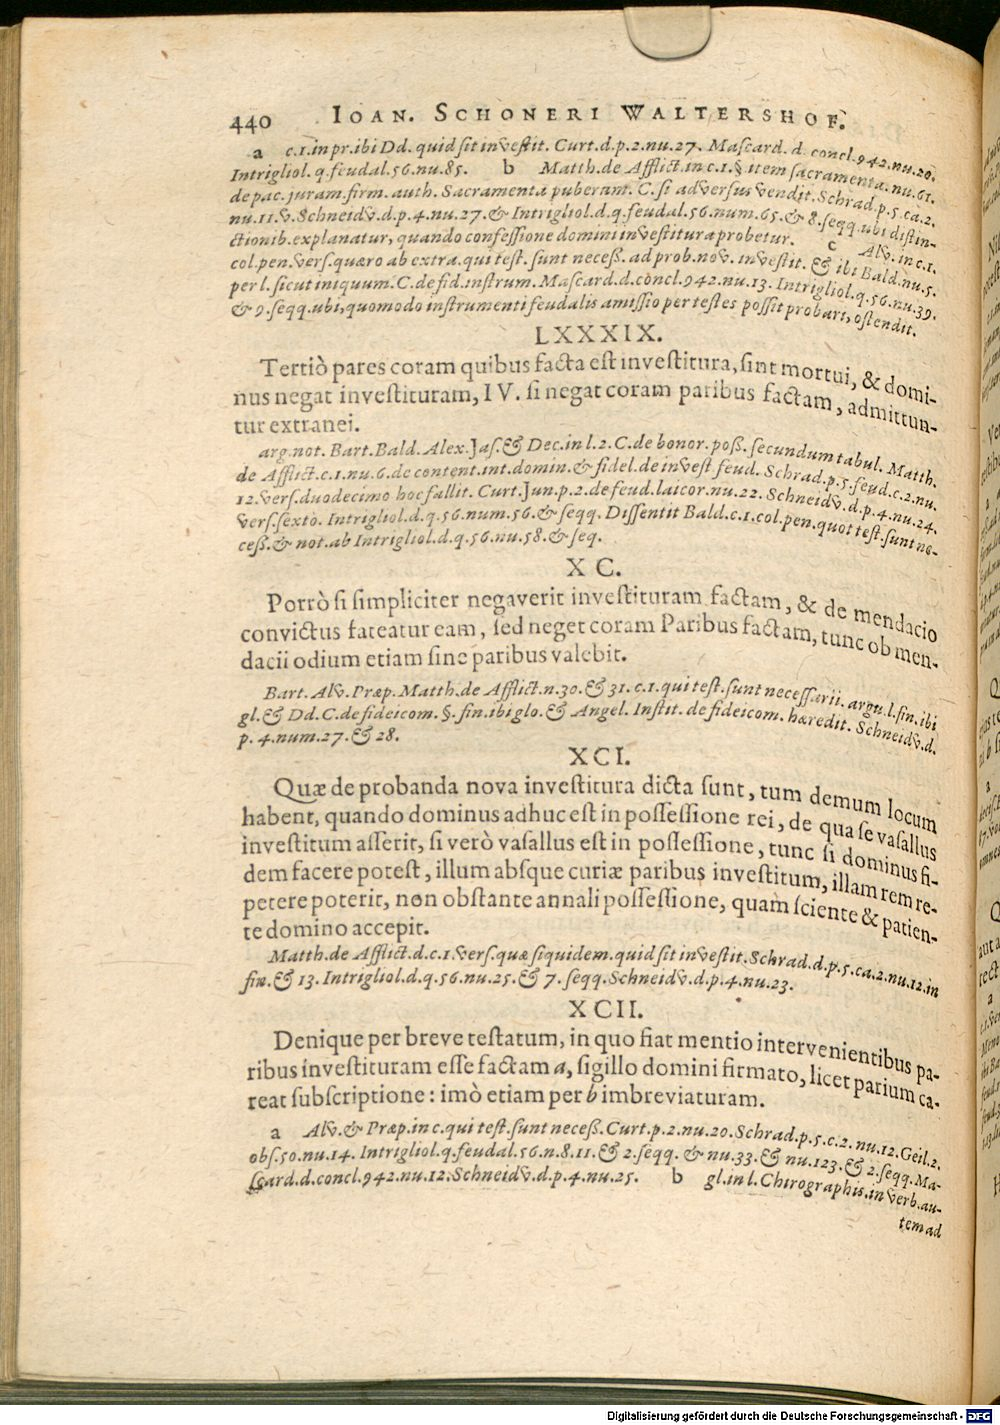 440 IOAN. SCHONERI WALTERSHOF.
a c.1.in pr.ibi Dd. quid sit investit. Curt.d.p.2.nu.27. Mascard. d. concl.942.nu.20.
Intrigliol. q.feudal.56.nu.85. b Matth.de Afflict.in c.1.§ item sacramenta.nu.61.
de pac.juram.firm. auth. Sacramenta puberum. C.si adversus vendit. Schrad.p.5.ca.2.
nu.11.v.Schneidv.d.p.4.nu.27.& Intrigliol.d.q.feudal.56.num.65.& 8.seqq.ubi distin-
ctionib.explanatur, quando confessione domini investitura probetur. c Alv.in c.1.
col.pen.vers.quæro ab extra.qui test. sunt necess. ad prob.nov. investit. & ibi Bald.nu.5.
per l. sicut iniquum. C.de fid.instrum. Mascard.d.concl.942.nu.13. Intrigliol.q.56.nu.39.
& 9.seqq.ubi, quomodo instrumenti feudalis amissio per testes possit probari, ostendit.
LXXXIX.
Tertiò pares coram quibus facta est investitura, sint mortui, & domi-
nus negat investituram, IV. si negat coram paribus factam, admittun-
tur extranei.
arg.not. Bart.Bald. Alex.Jas.& Dec.in l.2. C.de bonor.poss. secundum tabul. Matth.
de Afflict.c.1.nu.6.de content.int.domin.& fidel.de invest feud. Schrad.p.5.feud.c.2.nu.
12.vers.duodecimo hoc fallit. Curt.Jun.p.2.de feud.laicor.nu.22. Schneidv.d.p.4.nu.24.
vers.sexto. Intrigliol.d.q.56.num.56.& seqq. Dissentit Bald.c.1.col.pen.quot test.sunt ne-
cess.& not.ab Intrigliol.d.q.56.nu.58.& seq.
XC.
Porrò si simpliciter negaverit investituram factam, & de mendacio
convictus fateatur eam, sed neget coram Paribus factam, tunc ob men-
dacii odium etiam sine paribus valebit.
Bart. Alv. Præp. Matth.de Afflict.n.30.& 31. c.1.qui test.sunt necessarii. argu.l.fin.ibi
gl.& Dd.C.de fideicom. §. fin.ibi glo.& Angel. Instit. de fideicom. hæredit. Schneidv.d.
p. 4.num.27.& 28.
XCI.
Quæ de probanda nova investitura dicta sunt, tum demum locum
habent, quando dominus adhuc est in possessione rei, de qua se vasallus
investitum asserit, si verò vasallus est in possessione, tunc si dominus fi-
dem facere potest, illum absque curiæ paribus investitum, illam rem re-
petere poterit, non obstante annali possessione, quam sciente & patien-
te domino accepit.
Matth.de Afflict.d.c.1.vers.quæ siquidem.quid sit investit.Schrad.d.p.5.ca.2.nu.12.in
fin.& 13. Intrigliol.d.q.56.nu.25.& 7. seqq.Schneidv.d.p.4.nu.23.
XCII.
Denique per breve testatum, in quo fiat mentio intervenientibus pa-
ribus investituram esse factam a, sigillo domini firmato, licet parium ca-
reat subscriptione: imò etiam per b imbreviaturam.
a Alv.& Præp.in c.qui test.sunt necess.Curt.p.2.nu.20.Schrad.p.5.c.2.nu.12.Geil.2.
obs.50.nu.14. Intrigliol.q.feudal.56.n.8.11.& 2.seqq. & nu.33.& nu.123.& 2.seqq.Ma-
scard.d.concl.942.nu.12.Schneidv.d.p.4.nu.25. b gl.in l.Chirographis.in verb.au-
tem ad
Digitalisierung gefördert durch die Deutsche Forschungsgemeinschaft - DFG